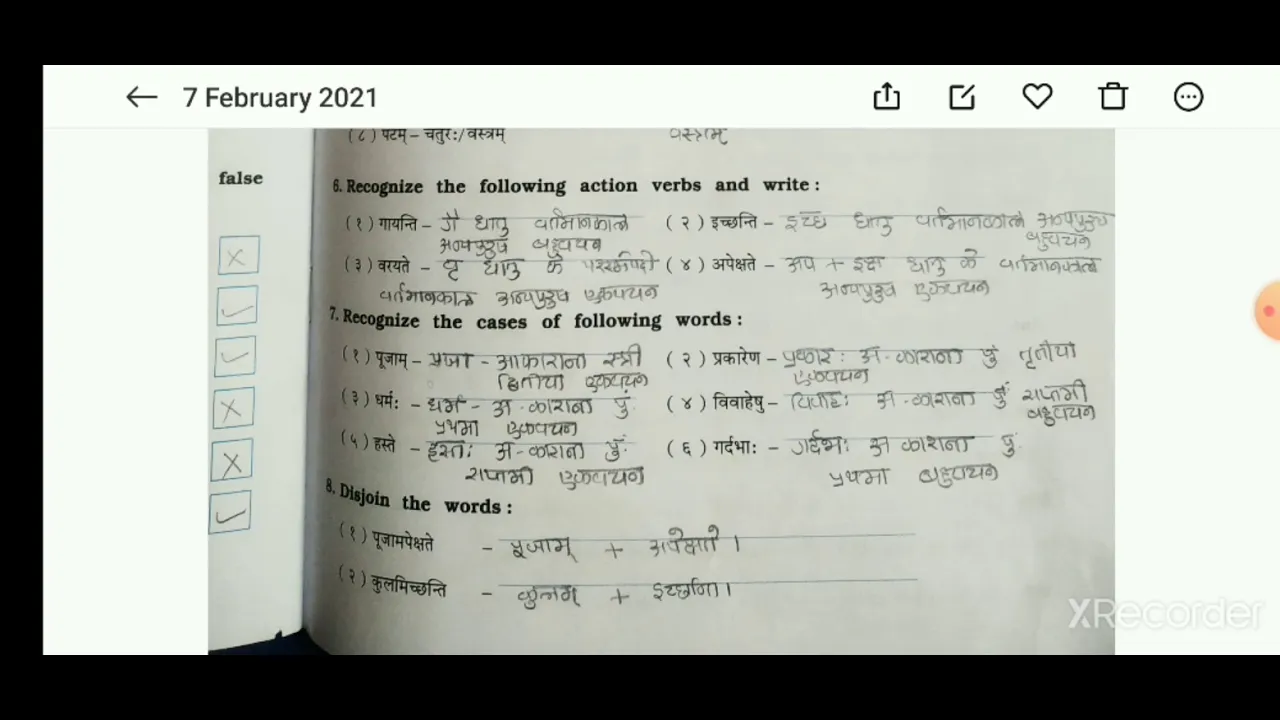 7 February 2021
(८) पटम् – चतुरः/वस्त्रम् वस्त्रम्
false
6. Recognize the following action verbs and write :
(१) गायन्ति – गै धातु वर्तमानकाल (२) इच्छन्ति – इच्छ धातु वर्तमानकाल अन्यपुरुष
अन्यपुरुष बहुवचन बहुवचन
(३) वरयते – वृ धातु के परस्मैपदी (४) अपेक्षते – अप + इक्ष धातु के वर्तमानकाल
वर्तमानकाल अन्यपुरुष एकवचन अन्यपुरुष एकवचन
7. Recognize the cases of following words :
(१) पूजाम् – पूजा – आकारान्त स्त्री (२) प्रकारेण – प्रकारः अ-कारान्त पुं तृतीया
द्वितीया एकवचन एकवचन
(३) धर्मः – धर्म – अ-कारान्त पुं. (४) विवाहेषु – विवाहः अ-कारान्त पुं सप्तमी
प्रथमा एकवचन बहुवचन
(५) हस्ते – हस्तः अ-कारान्त पुं. (६) गर्दभाः – गर्दभः अ कारान्त पुं.
सप्तमी एकवचन प्रथमा बहुवचन
8. Disjoin the words :
(१) पूजामपेक्षते – पूजाम् + अपेक्षते ।
(२) कुलमिच्छन्ति – कुलम् + इच्छन्ति ।
XRecorder